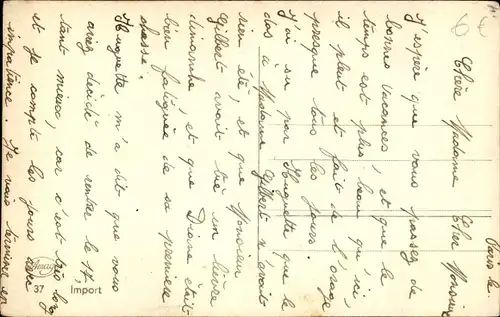 Paris le
Chère Madame Cher Monsieur
J'espère que vous passez de
bonnes vacances et que le
temps est plus beau qu'ici,
il pleut et fait de l'orage
presque tous les jours
J'ai su par Huguette que le
dos à Madame Gilbert n'avait
rien été, et que Monsieur
Gilbert avait tué un lièvre
dimanche, et que Diane était
bien fatiguée de sa première
chasse.
Huguette m'a dit que vous
aviez décidé de rentrer le 17,
tant mieux, car c'est très long
et je compte les jours avec
impatience. Je vous termine en
37 Import